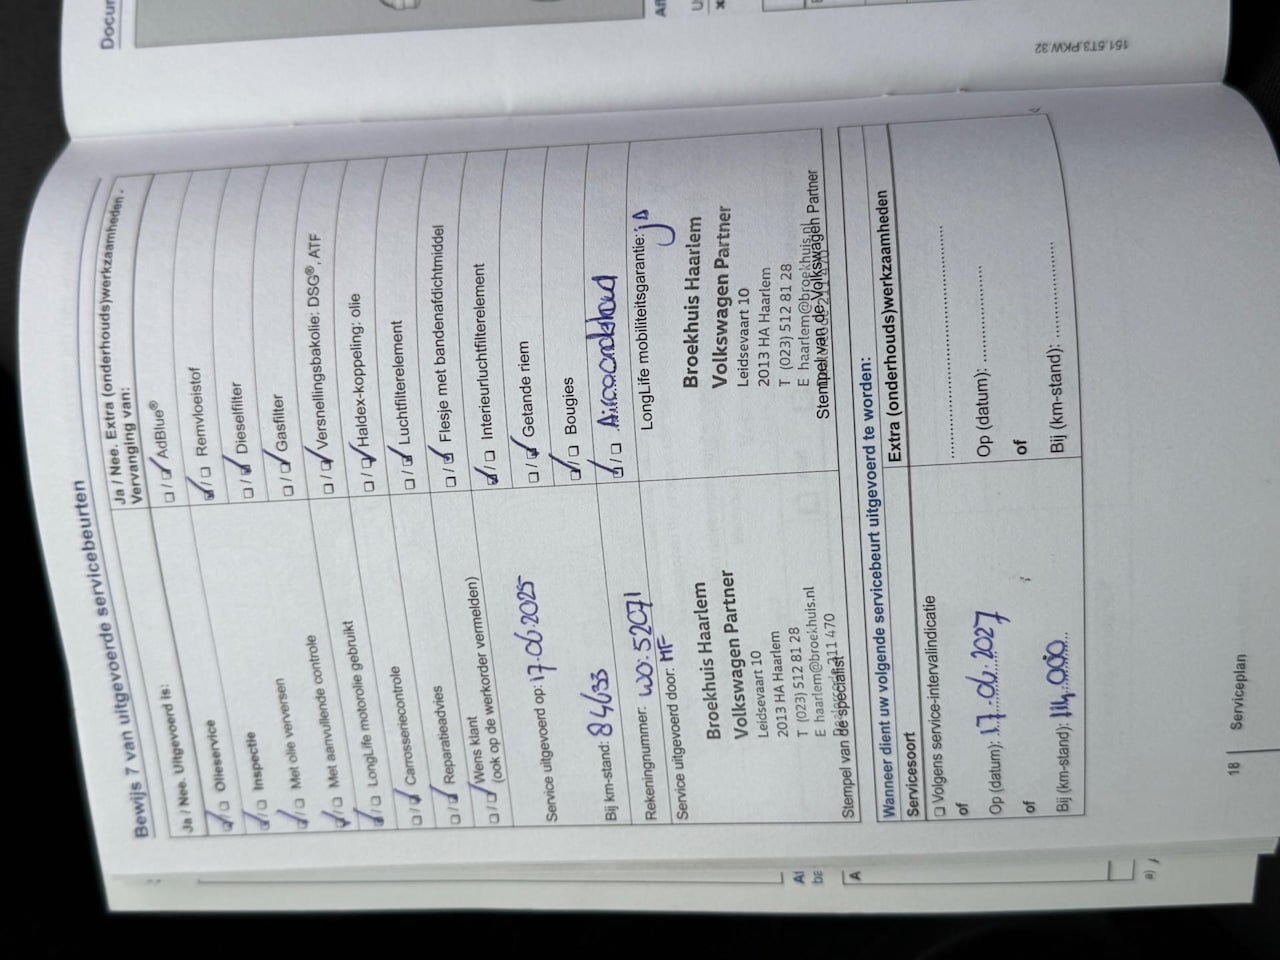 Bewijs 7 van uitgevoerde servicebeurten
Ja / Nee. Uitgevoerd is:
☑/☐ Olieservice
☑/☐ Inspectie
☑/☐ Met olie verversen
☑/☐ Met aanvullende controle
☑/☐ LongLife motorolie gebruikt
☐/☑ Carrosseriecontrole
☐/☑ Reparatieadvies
☐/☑ Wens klant
(ook op de werkorder vermelden)
Service uitgevoerd op: 17.06.2025
Bij km-stand: 84633
Rekeningnummer: WO: 52071
Service uitgevoerd door: MF
Broekhuis Haarlem
Volkswagen Partner
Leidsevaart 10
2013 HA Haarlem
T (023) 512 81 28
E haarlem@broekhuis.nl
211 470
Stempel van de specialist
Ja / Nee. Extra (onderhouds)werkzaamheden.
Vervanging van:
☐/☑ AdBlue®
☑/☐ Remvloeistof
☐/☑ Dieselfilter
☐/☑ Gasfilter
☐/☑ Versnellingsbakolie: DSG®, ATF
☐/☑ Haldex-koppeling: olie
☐/☑ Luchtfilterelement
☐/☑ Flesje met bandenafdichtmiddel
☑/☐ Interieurluchtfilterelement
☐/☑ Getande riem
☑/☐ Bougies
☑/☐ Aircoonderhoud
LongLife mobiliteitsgarantie: ja
Broekhuis Haarlem
Volkswagen Partner
Leidsevaart 10
2013 HA Haarlem
T (023) 512 81 28
E haarlem@broekhuis.nl
Stempel van de Volkswagen Partner
Wanneer dient uw volgende servicebeurt uitgevoerd te worden:
Servicesoort
☐ Volgens service-intervalindicatie
of
Op (datum): 17.06.2027
of
Bij (km-stand): 114.000
Extra (onderhouds)werkzaamheden
Op (datum):
of
Bij (km-stand):
18
Serviceplan
151.5T3.PKW.32
Docur